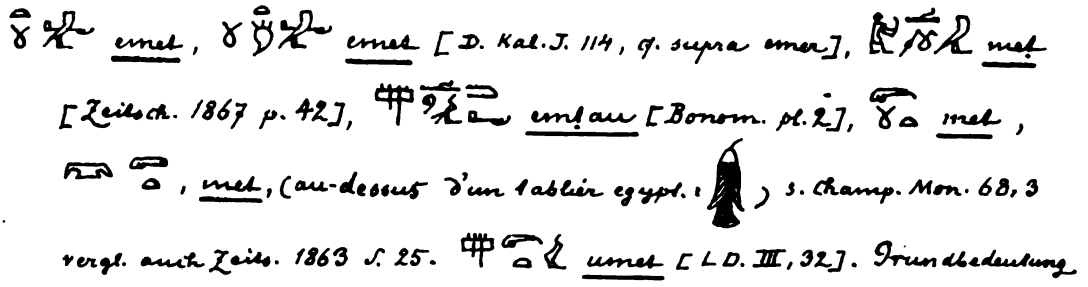 emet, emet [D. Kal. J. 114, cf. supra emer], meṭ
[Zeitsch. 1867 p. 42], emṭau [Bonom. pl. 2], met,
, met, (au-dessus d'un tablier egypt.: ) s. Champ. Mon. 68,3
vergl. auch Zeits. 1863 S. 25. umet [LD. III, 32]. Grundbedeutung